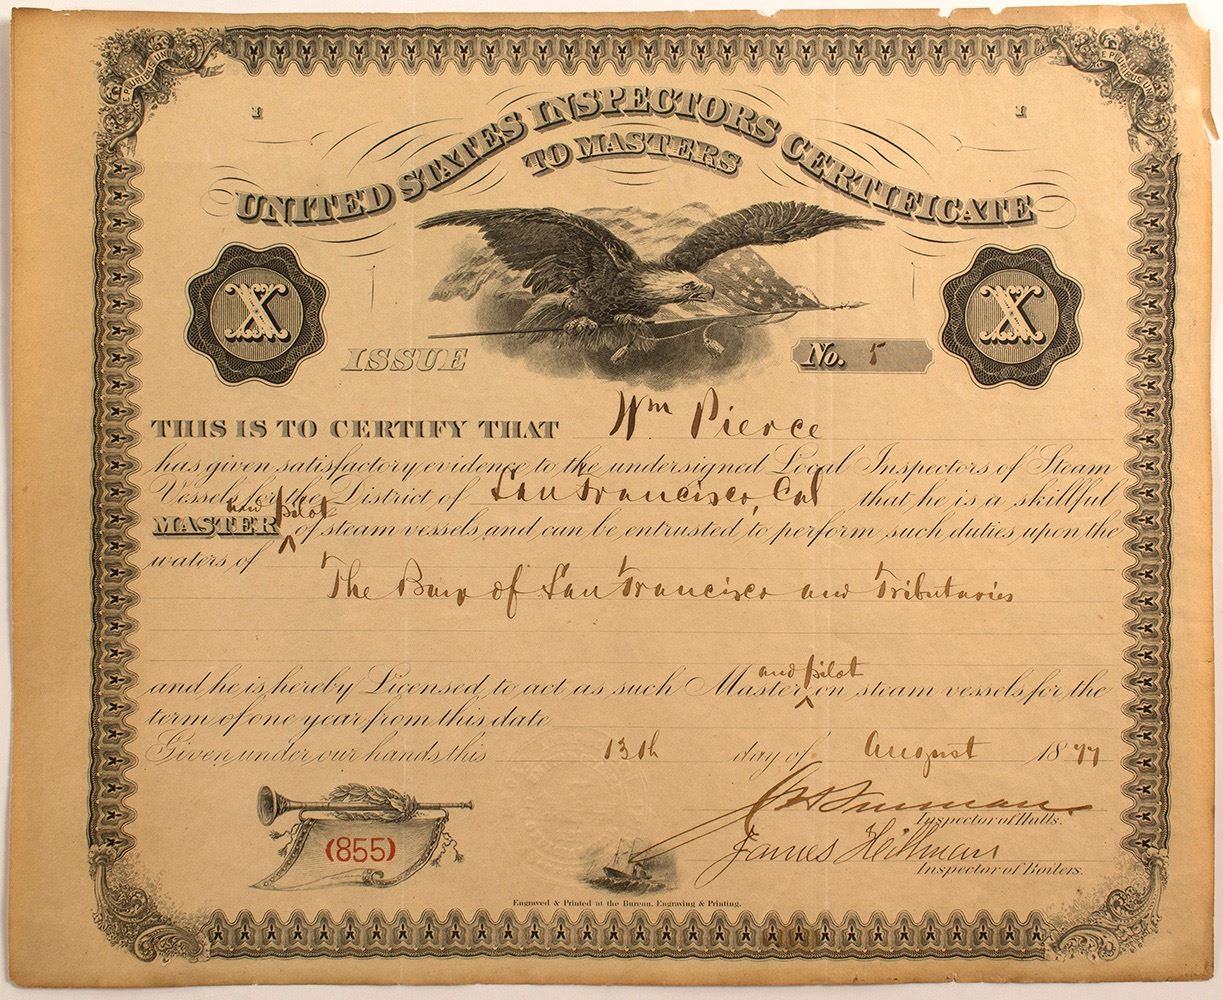 E PLURIBUS UNUM
E PLURIBUS UNUM
1 1
UNITED STATES INSPECTORS CERTIFICATE
TO MASTERS
X X
ISSUE No. 5
THIS IS TO CERTIFY THAT Wm Pierce
has given satisfactory evidence to the undersigned Local Inspectors of Steam
Vessels for the District of San Francisco, Cal that he is a skillful
and pilot
MASTER ^ of steam vessels and can be entrusted to perform such duties upon the
waters of
The Bay of San Francisco and Tributaries
and pilot
and he is hereby Licensed to act as such Master ^ on steam vessels for the
term of one year from this date
Given under our hands this 13th day of August 1877
Inspector of Hulls.
(855)
James Hillman
Inspector of Boilers.
Engraved & Printed at the Bureau, Engraving & Printing.